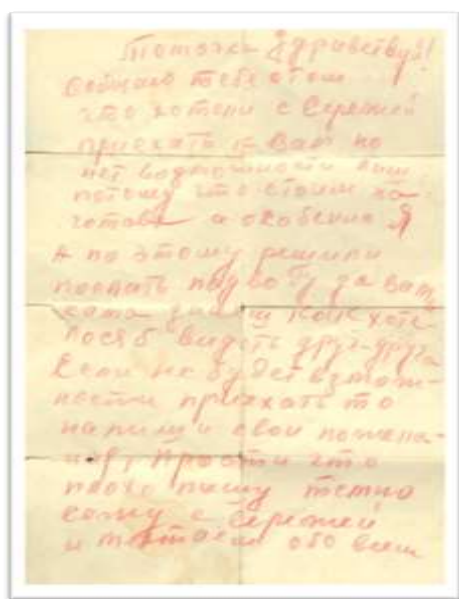 Томочка Здравствуй!
Сообщаю тебе о том
что хотели с Сережей
приехать к Вам но
нет возможности
потому что стоим на
готове а особенно Я
А по этому решили
послать подводу за Вам
сама знаеш как хоте
лося б видеть друг-друга
Если не будет взмож-
ности приехать то
напиши свои пожела-
Прости что
плохо пишу темно
сижу с Сережей
и мечтаем обо всем